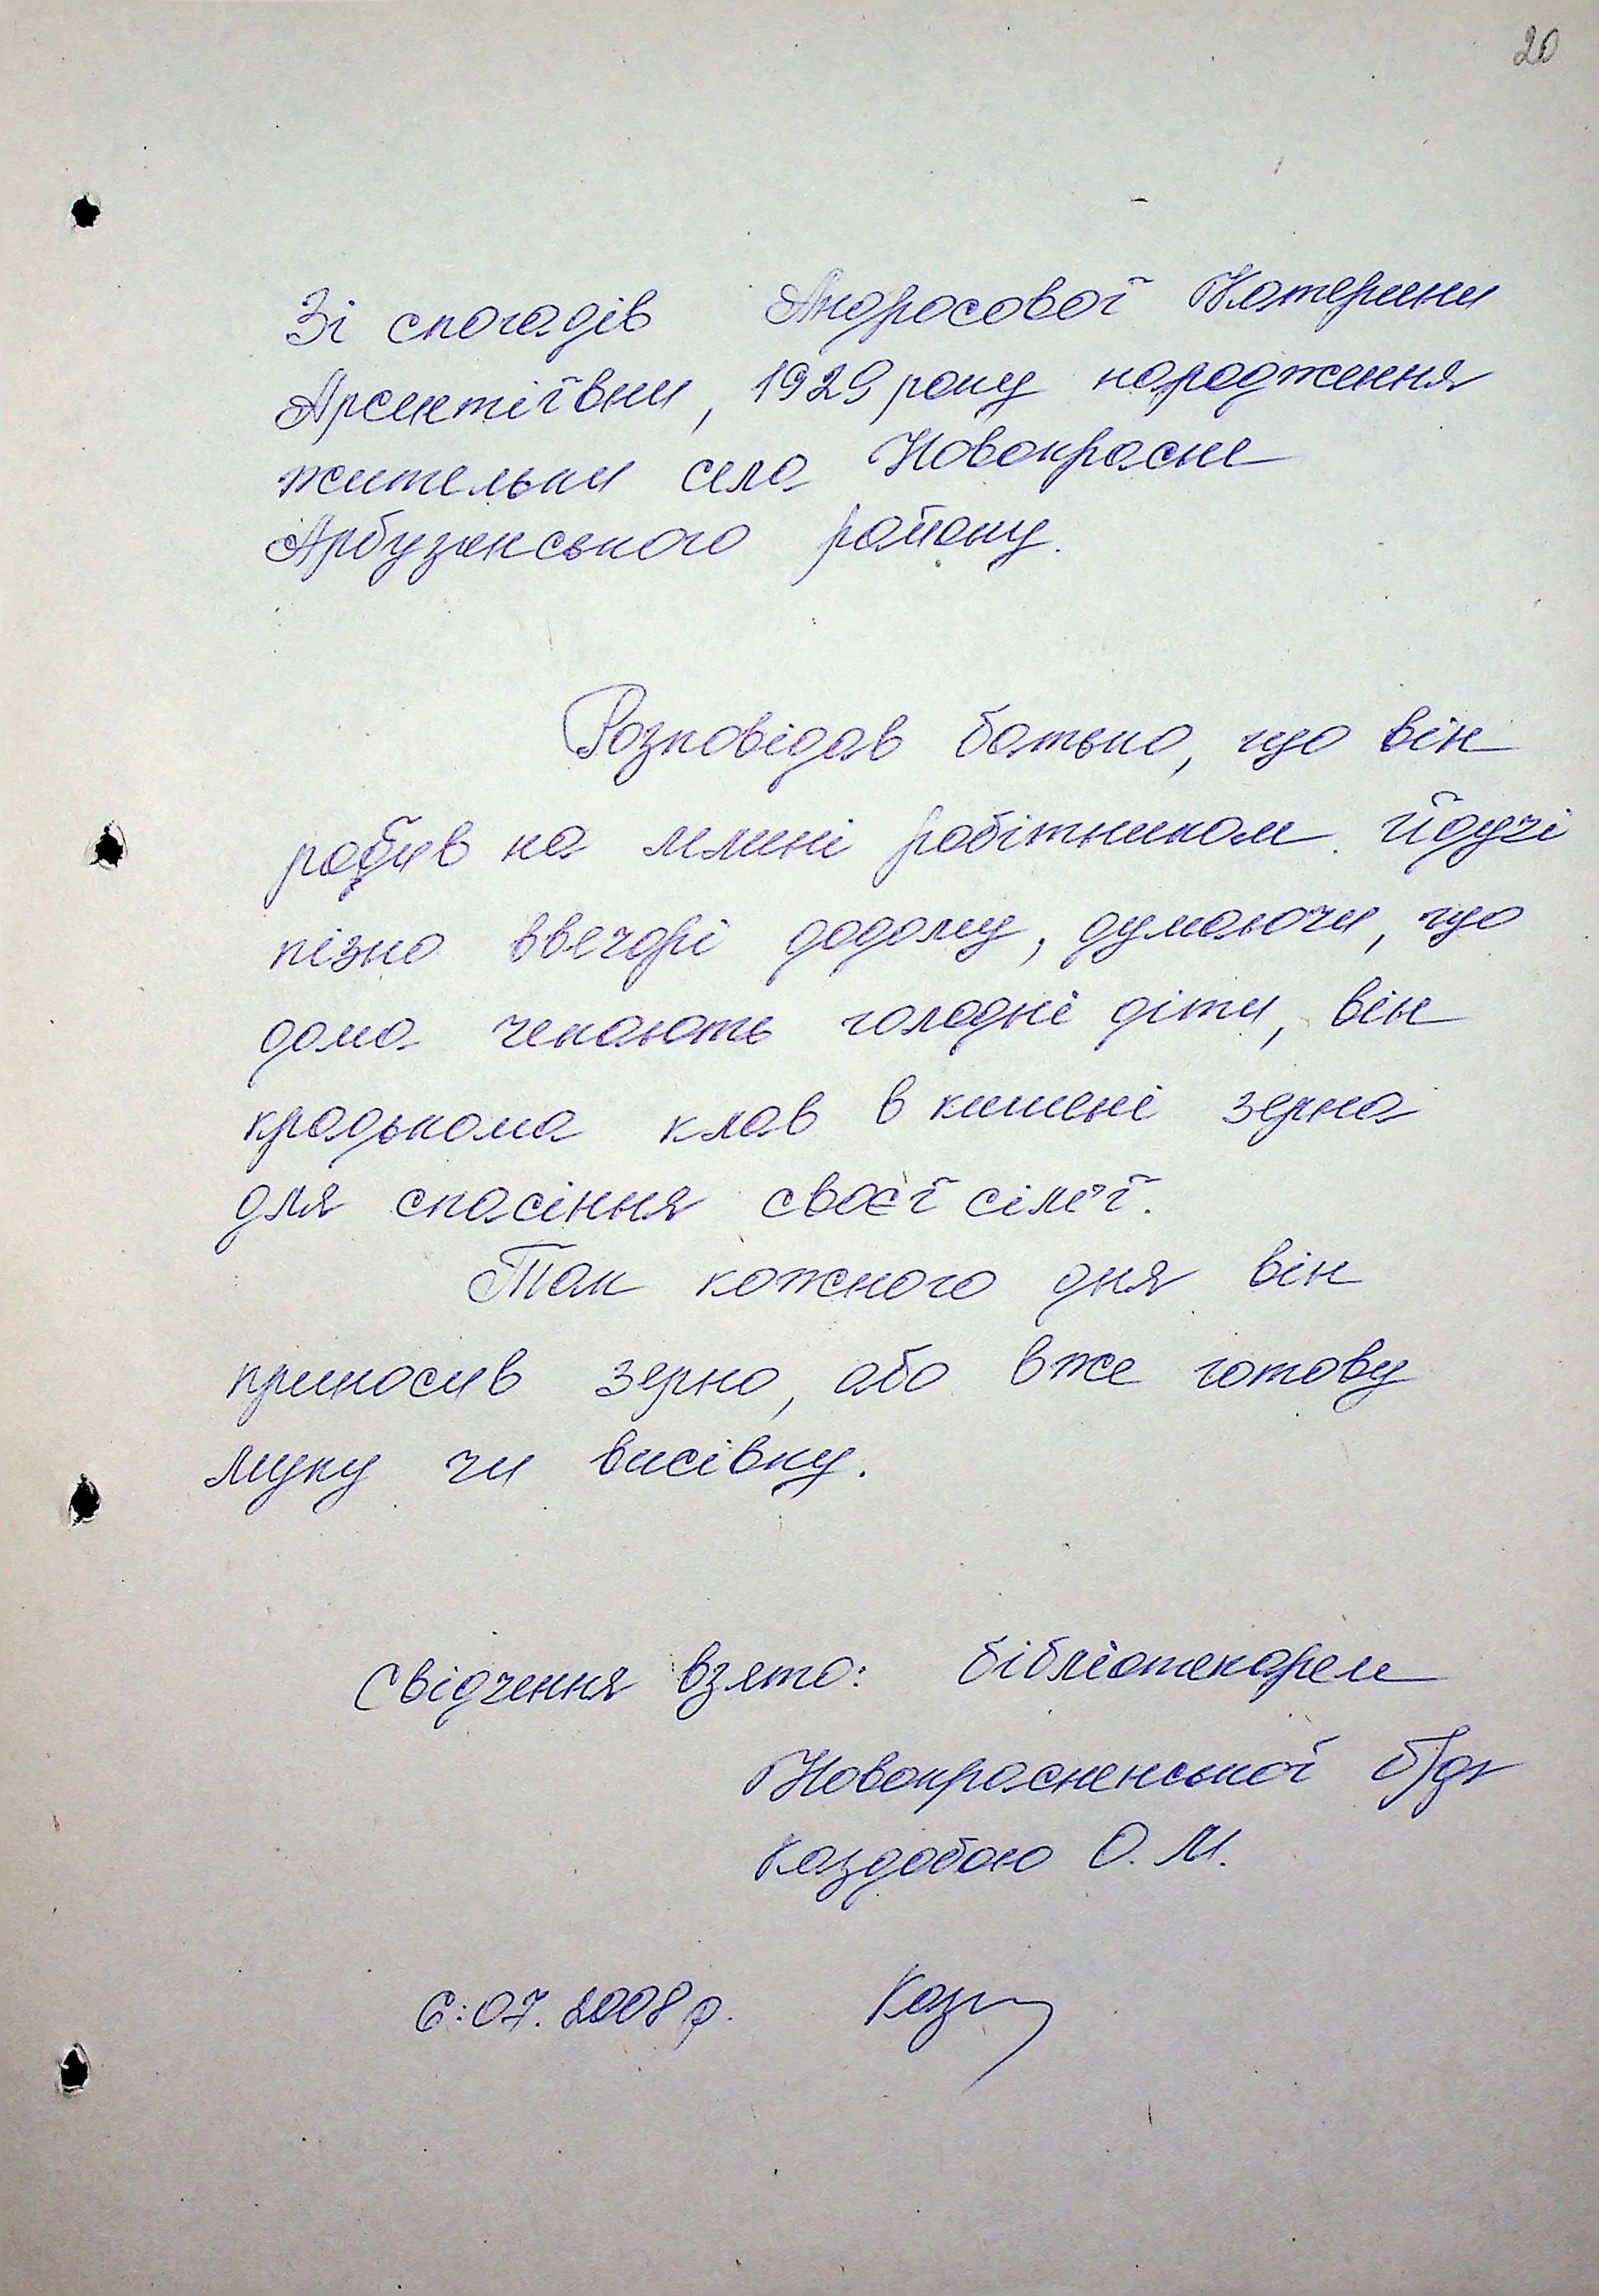 20
Зі спогадів Андросової Катерини
Арсентіївни, 1929 року народження
жительки села Новокрасне
Арбузинського району.
Розповідав батько, що він
робив на млині робітником. Йдучі
пізно ввечорі додому, думаючи, що
дома чекають голодні діти, він
крадькома клав в кишені зерна
для спасіння своєї сім'ї.
Так кожного дня він
приносив зерно, або вже готову
муку чи висівку.
Свідчення взято: бібліотекарем
Новокрасненської б/ф
Каздобою О. М.
6:07. 2008 р.